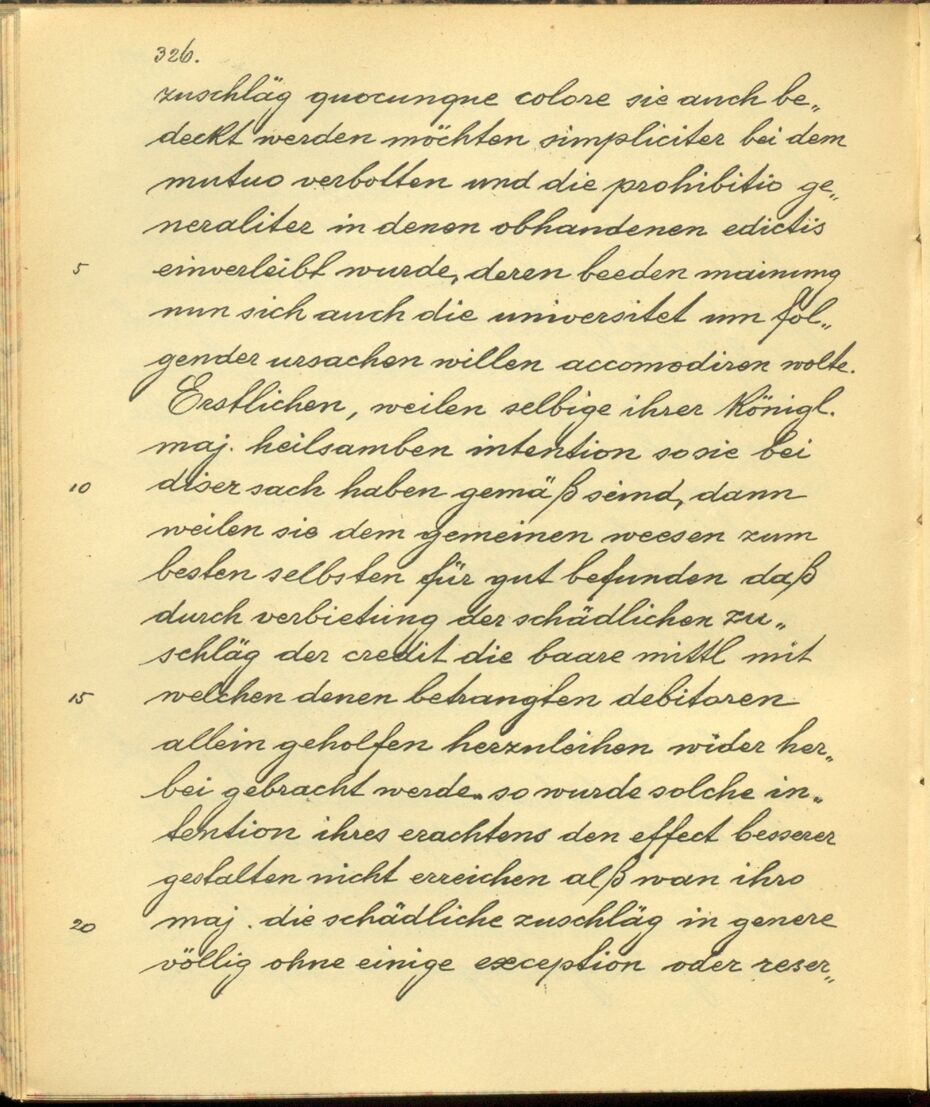 326.
zuschläg quocunque colore sie auch be„
deckt werden möchten simpliciter bei dem
mutuo verbotten und die prohibitio ge„
neraliter in denen obhandenen edictis
5 einverleibt wurde, deren beeden mainung
nun sich auch die universitet um fol„
gender ursachen willen accomodiren wolte.
Erstlichen, weilen selbige ihrer Königl.
maj. heilsamben intention so sie bei
10 diser sach haben gemäß seind, dann
weilen sie dem gemeinen weesen zum
besten selbsten für gut befunden daß
durch verbietung der schädlichen zu„
schläg der credit die baare mittl mit
15 welchen denen betrangten debitoren
allein geholfen herznleihen wider her„
bei gebracht werde. so wurde solche in„
tention ihres erachtens den effect besserer
gestalten nicht erreichen alß wan ihro
20 maj. die schädliche zuschläg in genere
völlig ohne einige exception oder reser„